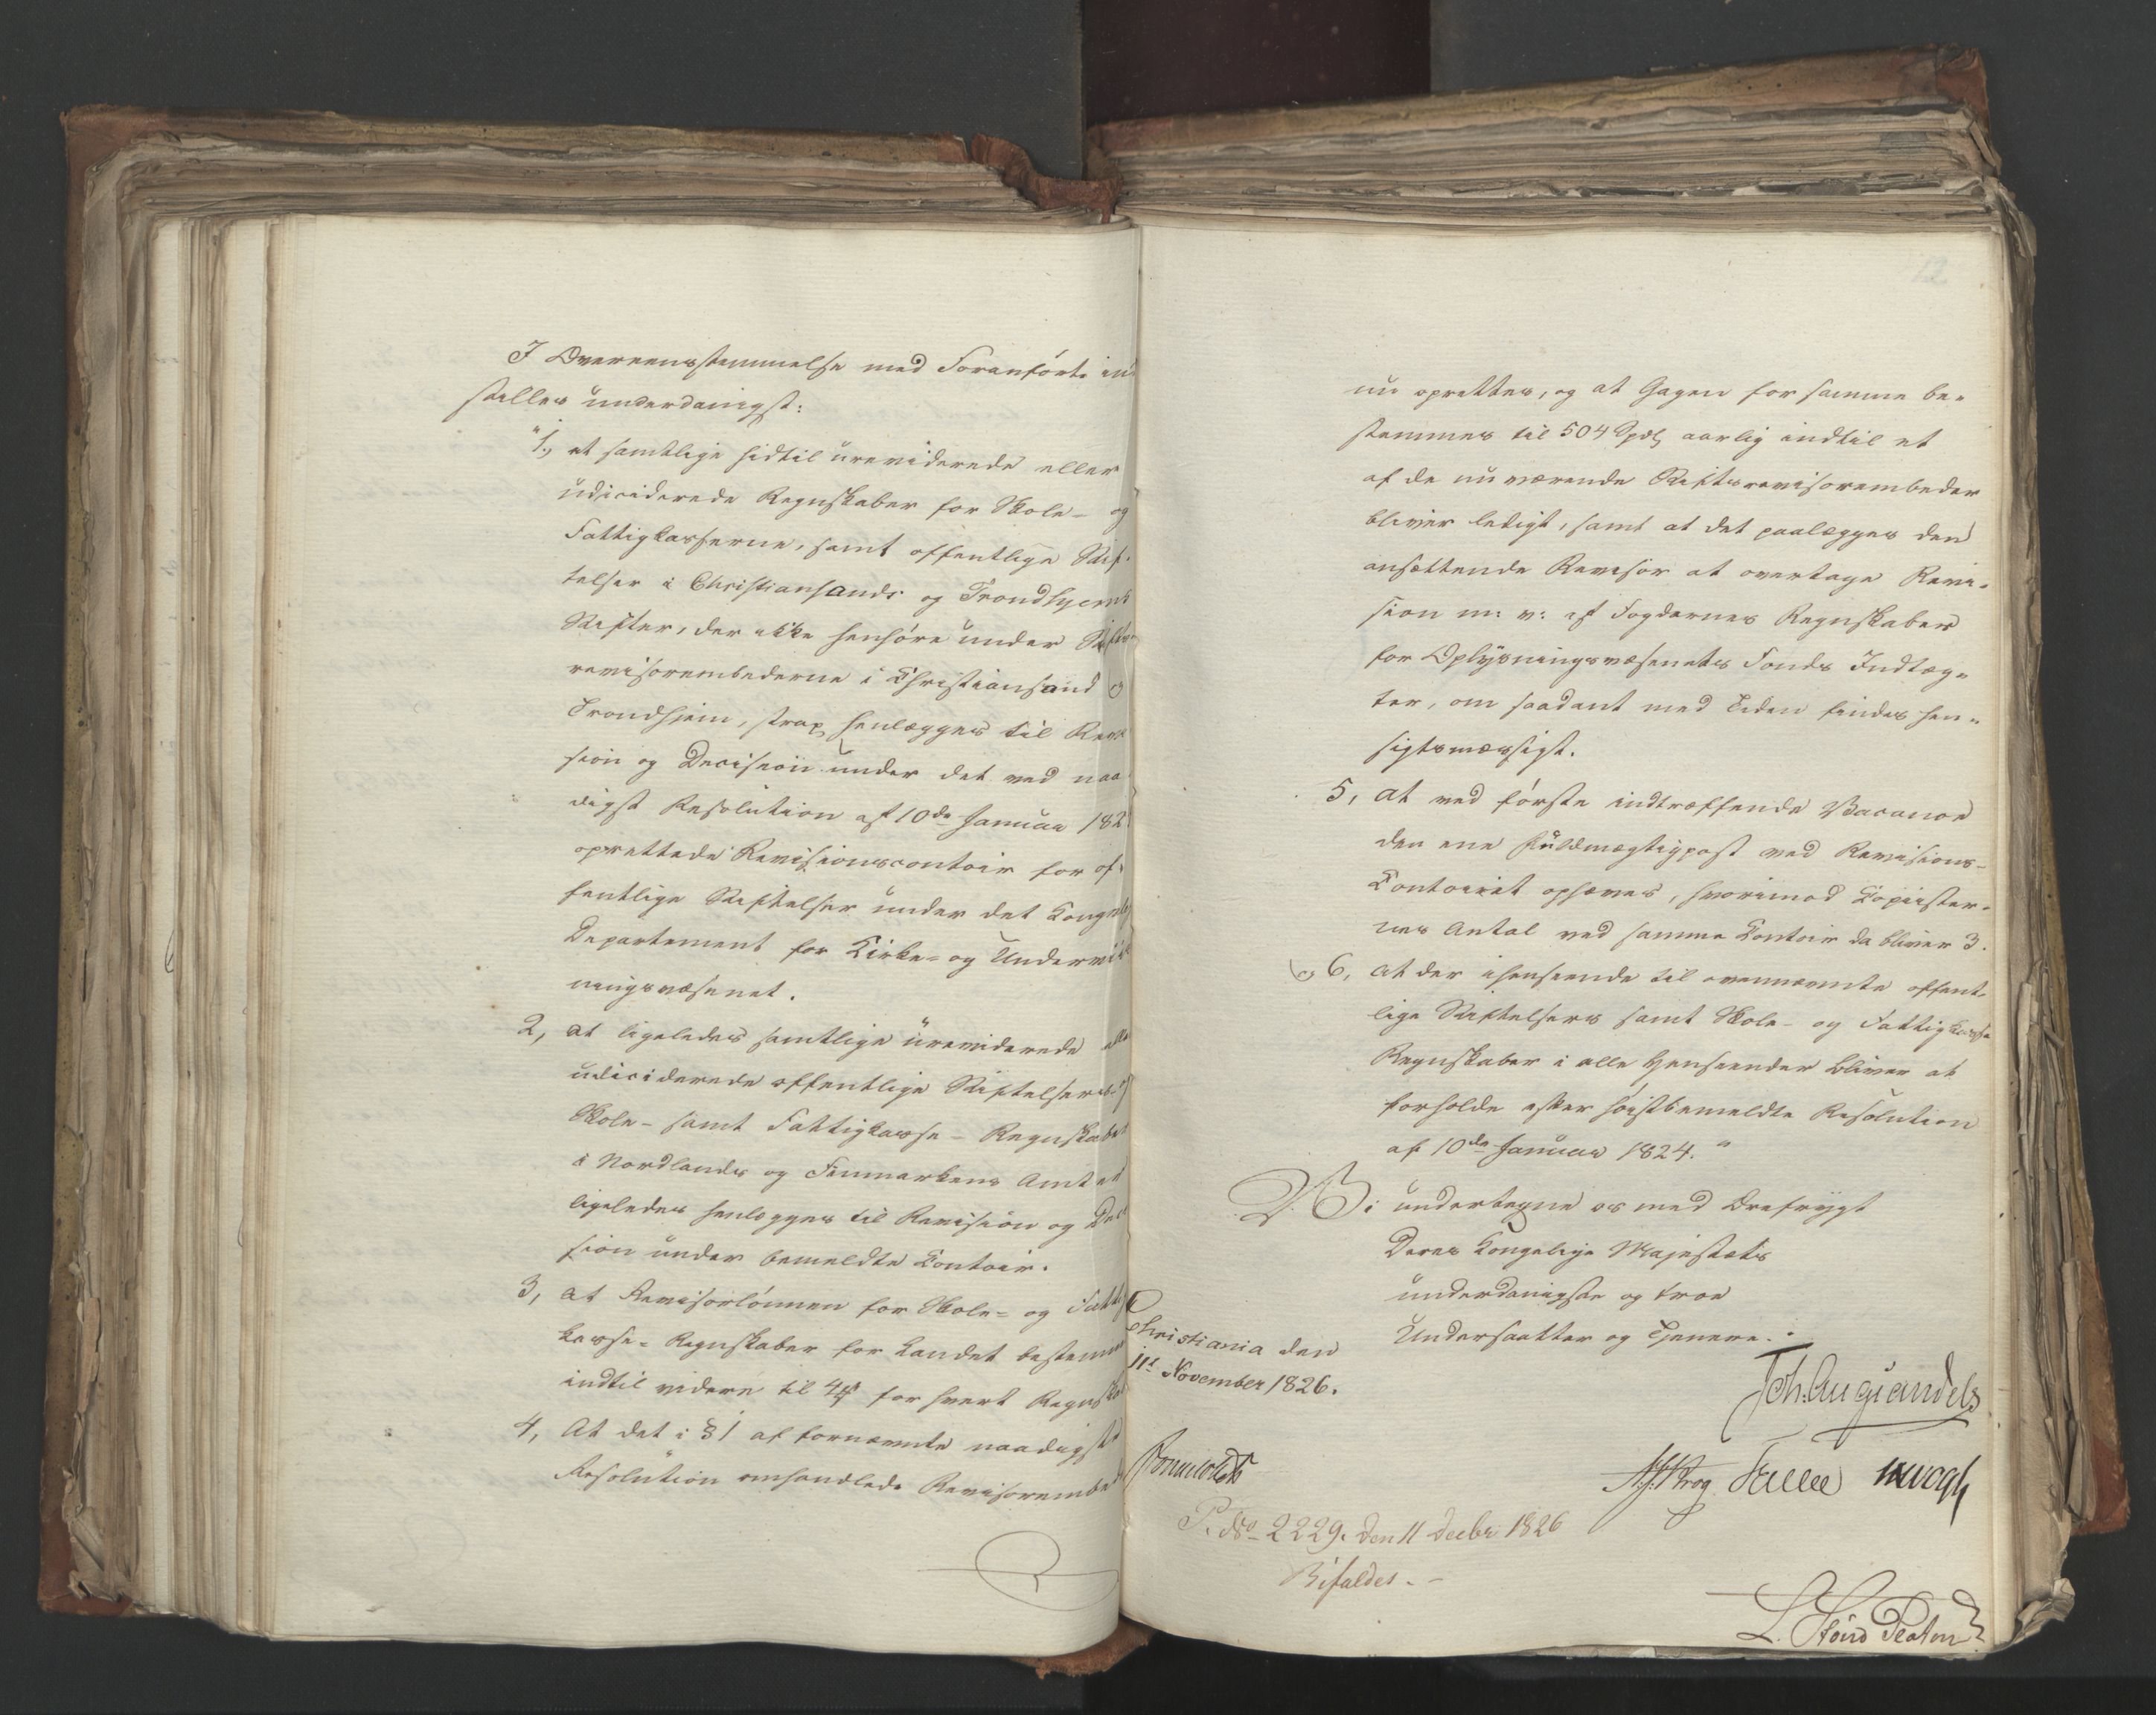 I Overeensstemmelse med Foranførte ind
stilles underdanigst:
"1, at samtlige hidtil ureviderede eller
udiciderede Regnskaber for Skole- og
Fattigkasserne, samt offentlige Stif-
telser i Christiansands og Trondhjems
Stifter, der ikke henhøre under Stifts
revisorembederne i Christiansand og
Trondhjem, strax henlægges til Revi
sion og Decision under det ved naa
digst Resolution af 10de Januar 182
oprettede Revisionscontoir for of-
fentlige Stiftelser under det Kongelig
Departement for Kirke- og Underviis
ningsvæsenet.
2, at ligeledes samtlige ureviderede eller
udiciderede offentlige Stiftelsers og
Skole- samt Fattigkasse-Regnskaber
i Nordlands og Finmarkens Amter
ligeledes henlægges til Revision og Deci
sion under bemeldte Contoir.
3, at Revisorlønnen for Skole- og Fattig
kasse-Regnskaber for Landet bestemmes
indtil videre til 4 for hvert Regnskab
4, At det i § 1 af fornævnte naadigste
Resolution omhandlede Revisorembed
12
nu oprettes, og at Gagen for samme be-
stemmes til 504 Spd aarlig indtil et
af de nuværende Stiftsrevisorembeder
bliver ledigt, samt at det paalægges den
ansættende Revisor at overtage Revi-
sion m: v: af Fogdernes Regnskaber
for Oplysningsvæsenets Fonds Indtæg-
ter, om saadant med Tiden findes hen-
sigtsmæssigt.
5, at ved første indtræffende Vacance
den ene Fuldmægtigpost ved Revisions-
Contoiret ophæves, hvorimod Copiister-
nes Antal ved samme Contoir da bliver 3.
og 6, at der ihenseende til ovennævnte offent-
lige Stiftelsers samt Skole- og Fattigkasse
Regnskaber i alle Henseender bliver at
forholde efter høistbemeldte Resolution
af 10de Januar 1824."
Vi undertegne os med Ærefrygt
Deres Kongelige Majestæts
underdanigste og troe
Undersaatter og Tjenere.
Christiania den
11t November 1826.
Joh. Aug. Sandels
Krog Falle
P. No 2229. den 11 Decbr 1826
Bifaldes.
L. Platou